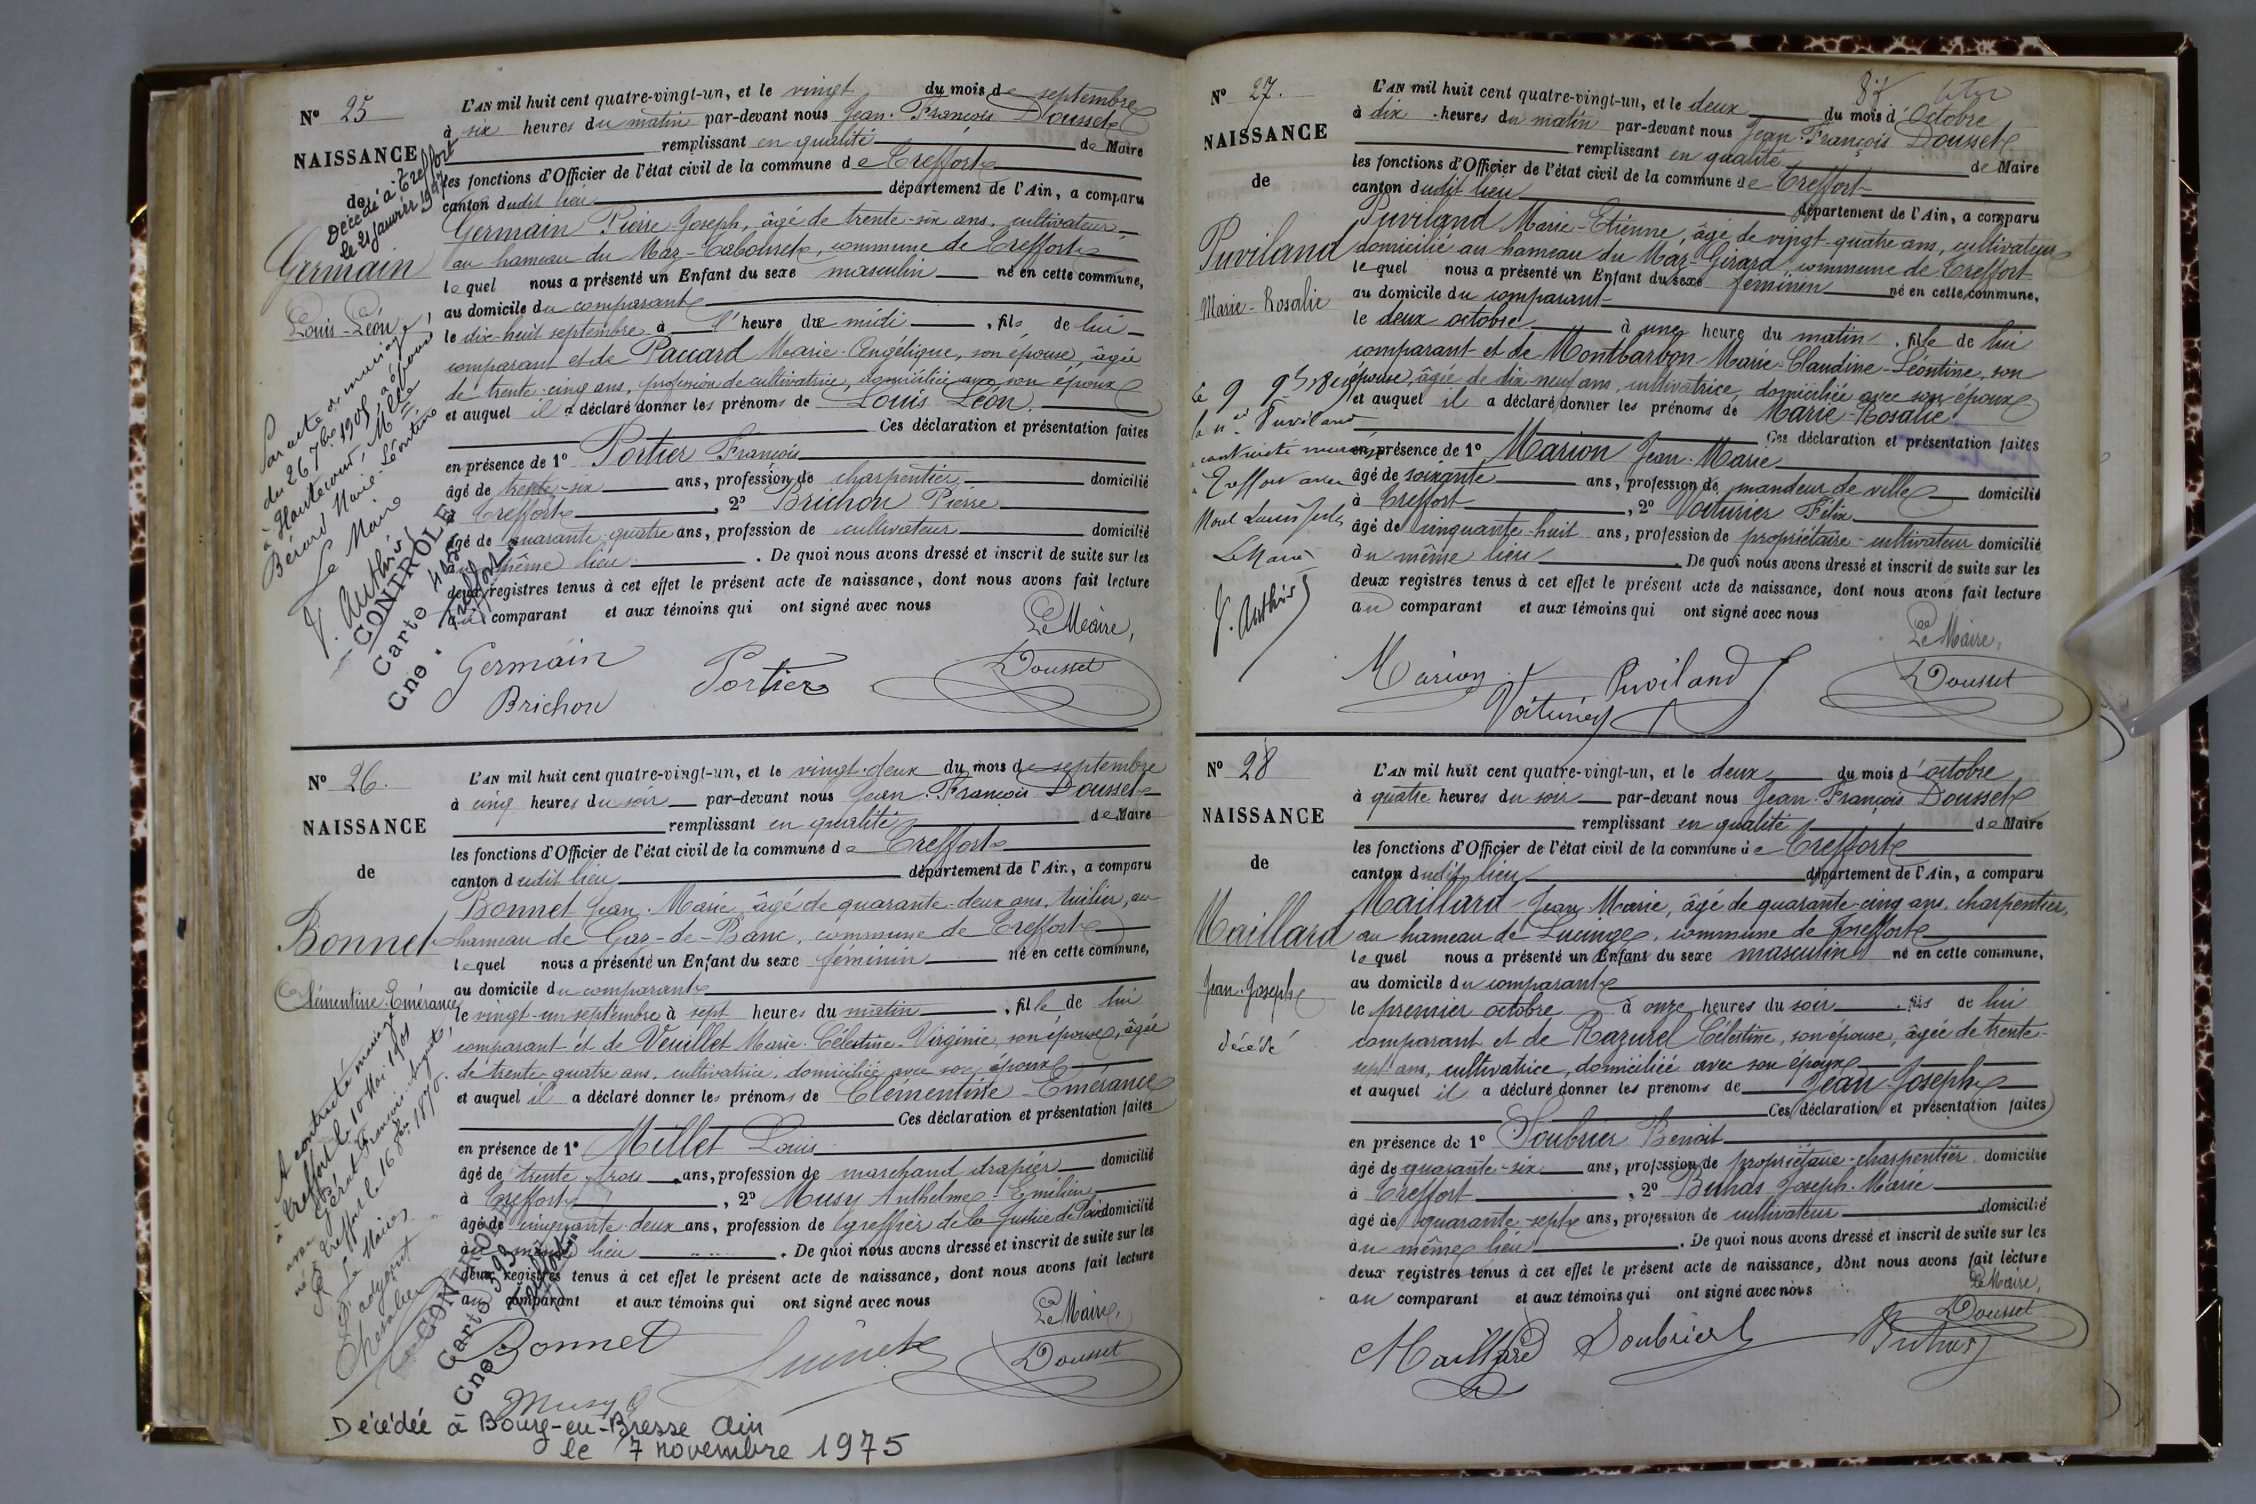 N° 25
NAISSANCE
de
Décédé à Treffort
le 21 janvier 19
Germain
Louis-Léon
Par acte de mariage
du 26 7bre 1905
à Hautecour, Mlle
Bérard Marie-Léontine
Le Maire
CONTROLE
Carte
Cne. Treffort
L'AN mil huit cent quatre-vingt-un, et le vingt du mois de septembre
à six heures du matin par-devant nous Jean-François Dousset
remplissant en qualité de Maire
les fonctions d'Officier de l'état civil de la commune de Treffort
canton dudit lieu département de l'Ain, a comparu
Germain Pierre-Joseph, âgé de trente-six ans, cultivateur,
au hameau du Maz- commune de Treffort
lequel nous a présenté un Enfant du sexe masculin né en cette commune,
au domicile du comparant
le dix-huit septembre à l'heure de midi, fils de lui
comparant et de Paccard Marie-Angélique, son épouse, âgée
de trente-cinq ans, profession de cultivatrice, domiciliée avec son époux
et auquel il a déclaré donner les prénoms de Louis Léon.
Ces déclaration et présentation faites
en présence de 1° Portier François
âgé de trente-six ans, profession de charpentier domicilié
à Treffort, 2° Brichon Pierre
âgé de quarante-quatre ans, profession de cultivateur domicilié
au même lieu. De quoi nous avons dressé et inscrit de suite sur les
deux registres tenus à cet effet le présent acte de naissance, dont nous avons fait lecture
au comparant et aux témoins qui ont signé avec nous
Le Maire,
Germain Portier Dousset
Brichon
N° 26.
NAISSANCE
de
Bonnet
Clémentine-Emérance
A contracté mariage
à Treffort le 10 Mai 1901
avec
né à Treffort le 16 1870.
Le Maire,
L'adjoint
Chevalier
CONTROLE
Carte 593
Cne. Treffort
L'AN mil huit cent quatre-vingt-un, et le vingt-deux du mois de septembre
à cinq heures du soir par-devant nous Jean-François Dousset
remplissant en qualité de Maire
les fonctions d'Officier de l'état civil de la commune de Treffort
canton dudit lieu département de l'Ain, a comparu
Bonnet Jean-Marie, âgé de quarante-deux ans, tuilier, au
hameau de commune de Treffort
lequel nous a présenté un Enfant du sexe féminin né en cette commune,
au domicile du comparant
le vingt-un septembre à sept heures du matin, fille de lui
comparant et de Veuillet Marie-Célestine-Virginie, son épouse, âgée
de trente-quatre ans, cultivatrice, domiciliée avec son époux
et auquel il a déclaré donner les prénoms de Clémentine-Emérance
Ces déclaration et présentation faites
en présence de 1° Millet Louis
âgé de trente-trois ans, profession de marchand drapier domicilié
à Treffort, 2° Musy Anthelme-Emilien
âgé de cinquante-deux ans, profession de greffier de la Justice de Paix domicilié
au même lieu. De quoi nous avons dressé et inscrit de suite sur les
deux registres tenus à cet effet le présent acte de naissance, dont nous avons fait lecture
au comparant et aux témoins qui ont signé avec nous
Le Maire,
Bonnet Dousset
Musy
Décédée à Bourg-en-Bresse Ain
le 7 novembre 1975
N° 27.
NAISSANCE
de
Puviland
Marie-Rosalie
Le 9
Puviland
contracté mariage
Treffort avec
Le Maire
L'AN mil huit cent quatre-vingt-un, et le deux du mois d'octobre
à dix heures du matin par-devant nous Jean-François Dousset
remplissant en qualité de Maire
les fonctions d'Officier de l'état civil de la commune de Treffort
canton dudit lieu département de l'Ain, a comparu
Puviland Marie-Etienne, âgé de vingt-quatre ans, cultivateur
domicilié au hameau du Maz-Girard, commune de Treffort
lequel nous a présenté un Enfant du sexe féminin né en cette commune,
au domicile du comparant
le deux octobre à une heure du matin, fille de lui
comparant et de Montbarbon Marie-Claudine-Léontine, son
épouse, âgée de dix-neuf ans, cultivatrice, domiciliée avec son époux
et auquel il a déclaré donner les prénoms de Marie-Rosalie
Ces déclaration et présentation faites
en présence de 1° Marion Jean-Marie
âgé de soixante ans, profession de mandeur de ville domicilié
à Treffort, 2° Voiturier Félix
âgé de cinquante-huit ans, profession de propriétaire-cultivateur domicilié
au même lieu. De quoi nous avons dressé et inscrit de suite sur les
deux registres tenus à cet effet le présent acte de naissance, dont nous avons fait lecture
au comparant et aux témoins qui ont signé avec nous
Le Maire,
Marion Puviland Dousset
Voiturier
N° 28
NAISSANCE
de
Maillard
Jean-Joseph
décédé
L'AN mil huit cent quatre-vingt-un, et le deux du mois d'octobre
à quatre heures du soir par-devant nous Jean-François Dousset
remplissant en qualité de Maire
les fonctions d'Officier de l'état civil de la commune de Treffort
canton dudit lieu département de l'Ain, a comparu
Maillard Jean-Marie, âgé de quarante-cinq ans, charpentier,
au hameau de Lucinge, commune de Treffort
lequel nous a présenté un Enfant du sexe masculin né en cette commune,
au domicile du comparant
le premier octobre à onze heures du soir, fils de lui
comparant et de Razurel Célestine, son épouse, âgée de trente-
sept ans, cultivatrice, domiciliée avec son époux
et auquel il a déclaré donner les prénoms de Jean-Joseph
Ces déclaration et présentation faites
en présence de 1° Soubrier Benoit
âgé de quarante-six ans, profession de propriétaire-charpentier domicilié
à Treffort, 2° Joseph-Marie
âgé de quarante-sept ans, profession de cultivateur domicilié
au même lieu. De quoi nous avons dressé et inscrit de suite sur les
deux registres tenus à cet effet le présent acte de naissance, dont nous avons fait lecture
au comparant et aux témoins qui ont signé avec nous
Le Maire,
Dousset
Maillard Soubrier